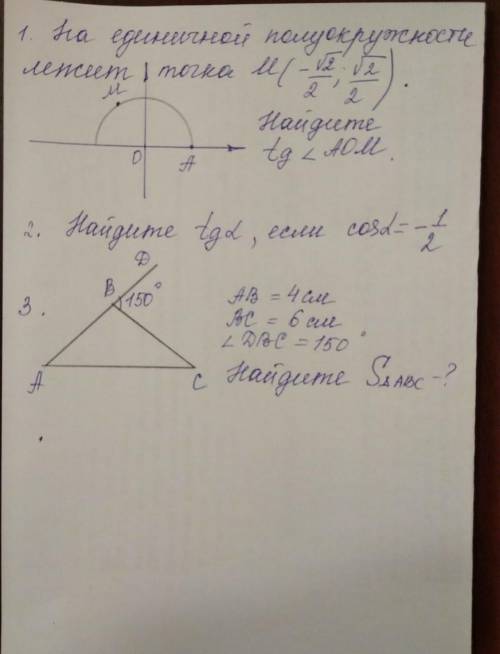 1. На единичной полуокружности
лежит точка M(-√2/2; √2/2).
M
O
A
Найдите
tg∠AOM.
2. Найдите tgα, если cosα = -1/2
3.
D
B
150°
A
C
AB = 4 см
BC = 6 см
∠DBC = 150°
Найдите S△ABC - ?